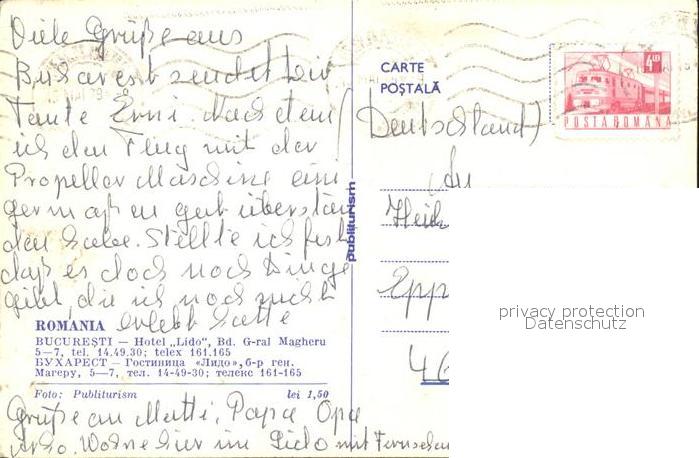 Viele Grüße aus
Bukarest sendet Dir
Tante Erni. Nachdem
ich den Flug mit der
Propeller Maschine eini
germaßen gut überstan
den habe. Stellte ich fest
daß es doch noch Dinge
gibt, die ich noch nicht
erlebt hatte
ROMANIA
BUCUREȘTI — Hotel „Lido", Bd. G-ral Magheru
5—7, tel. 14.49.30; telex 161.165
БУХАРЕСТ — Гостиница «Лидо», б-р ген.
Магеру, 5—7, тел. 14-49-30; телекс 161-165
Foto: Publiturism lei 1,50
Grüße an Mutti, Papa Opa
Wohne hier im Lido mit
publiturism
CARTE
POȘTALĂ
4 LEI
POSTA ROMANA
Deutschland)
An
Epp
46
privacy protection
Datenschutz